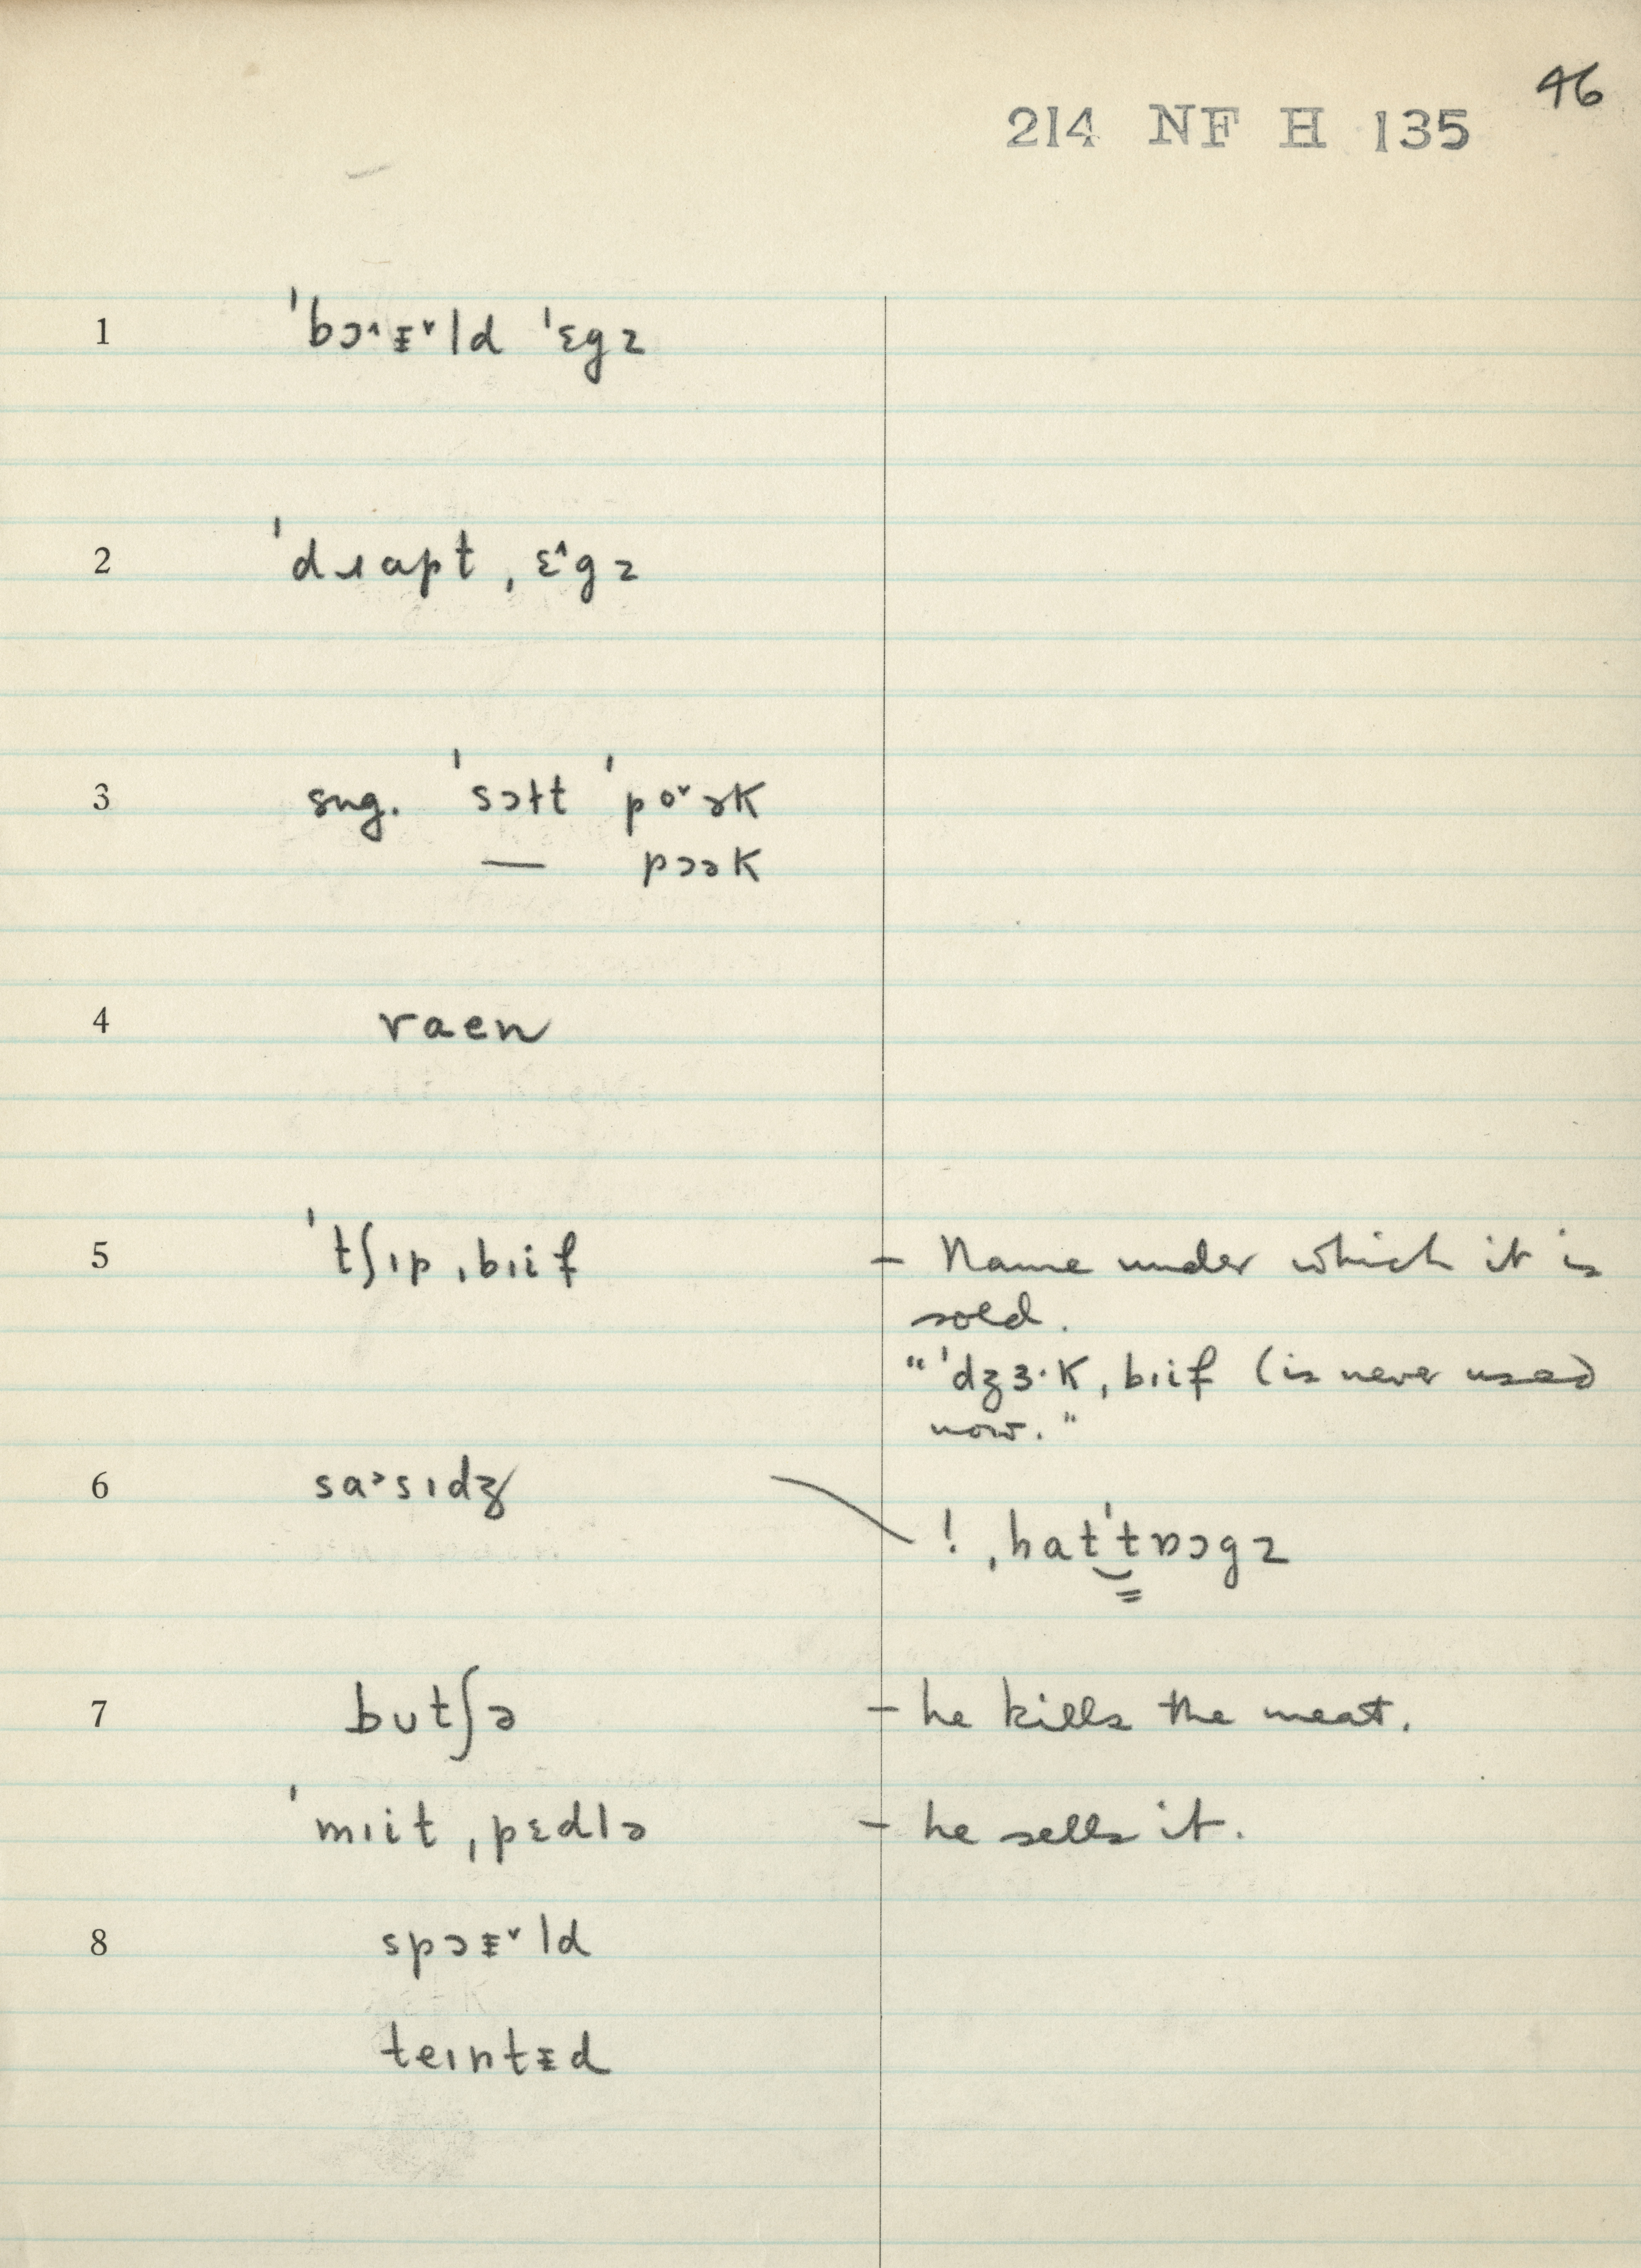 46
214 NF H 135
1 ˈbɔ˄ᵻ˅ld ˈɛgz
2 ˈdɹapt ˌɛ˄gz
3 sug. ˈsɔɫt ˈpo˅ɚk
— pɔɚk
4 raen
5 ˈtʃɪp ˌbɪif - Name under which it is
sold.
"ˈdʒɜ·k ˌbɪif (is never used
now."
6 sa˃sɪdʒ
! ˌhatˈt̬ɒɔgz
7 butʃə - he kills the meat.
ˈmɪit ˌpɛdlə - he sells it.
8 spɔᵻ˅ld
teɪntᵻd